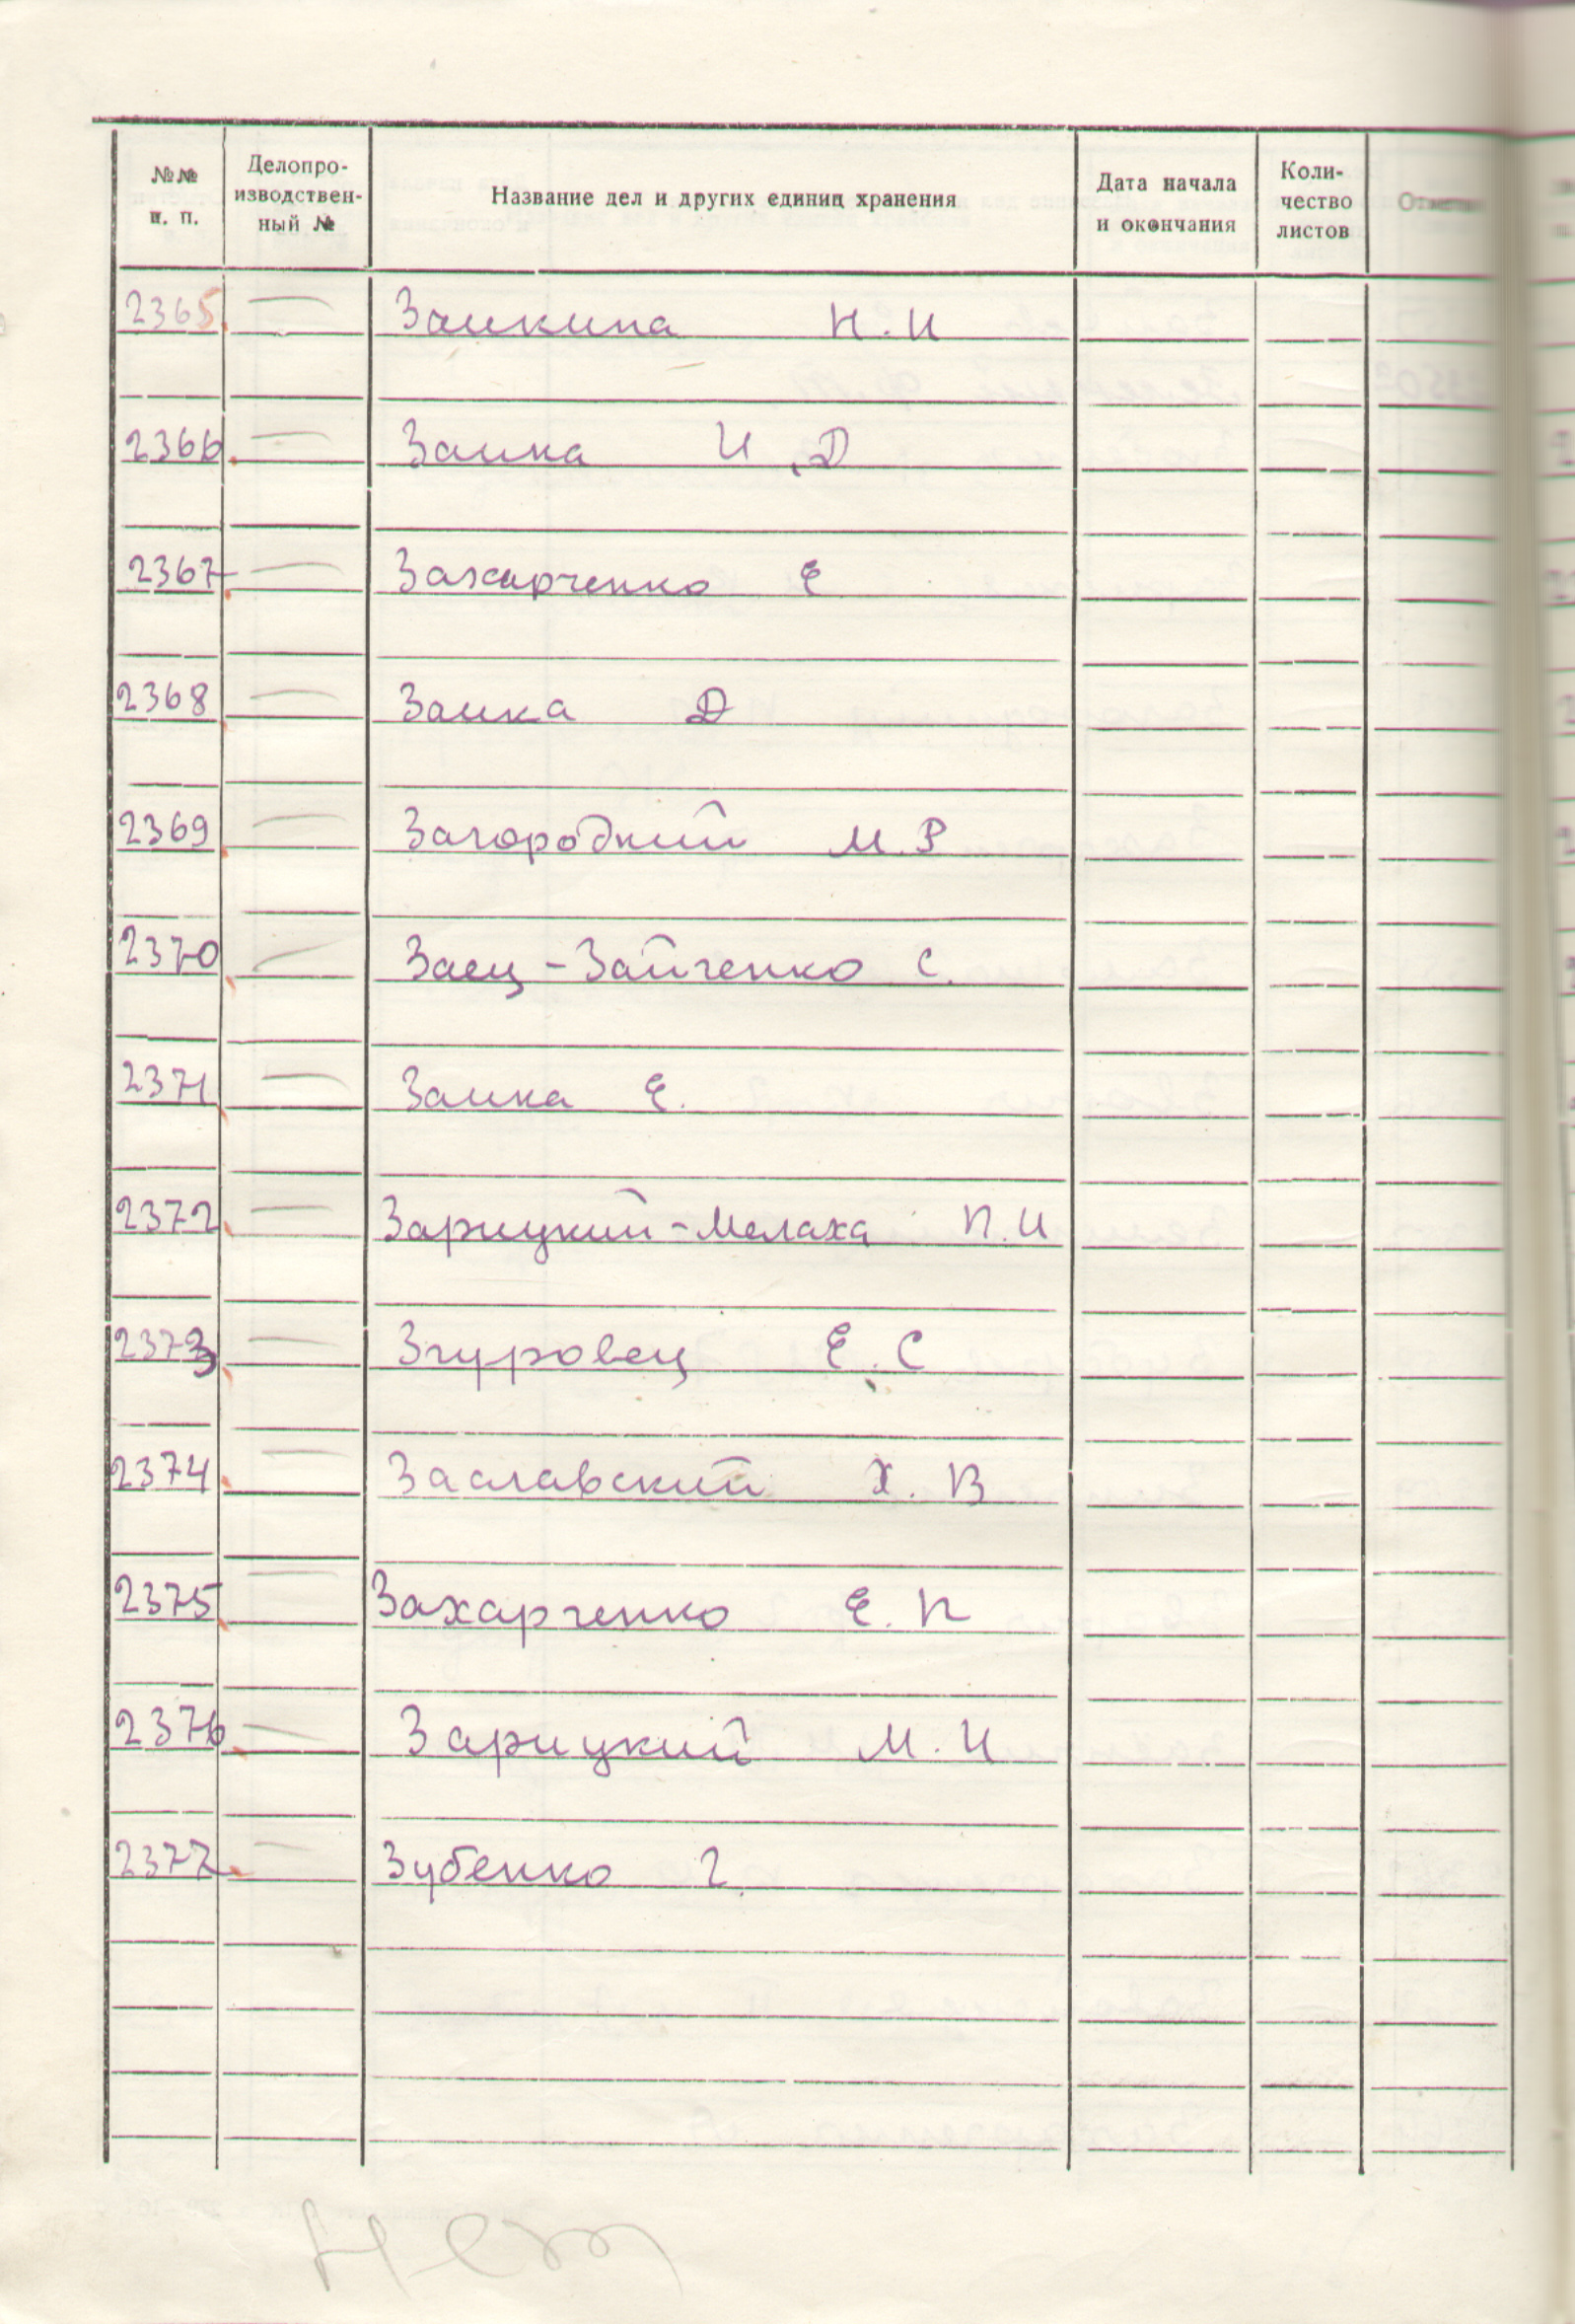 №№ п. п. Делопроизводственный № Название дел и других единиц хранения Дата начала и окончания Количество листов Отметки
2365 — Заикина Н. И
2366 — Заика И. Д
2367 — Захарченко Е
2368 — Заика Д
2369 — Загородний М. Р
2370 — Заец-Зайченко С.
2371 — Заика Е.
2372 — Зарицкий-Мелаха П. И
2373 — Згуровец Е. С
2374 — Заславский Х. В
2375 — Захарченко Е. П
2376 — Зарицкий М. И
2377 — Зубенко Г
Нет